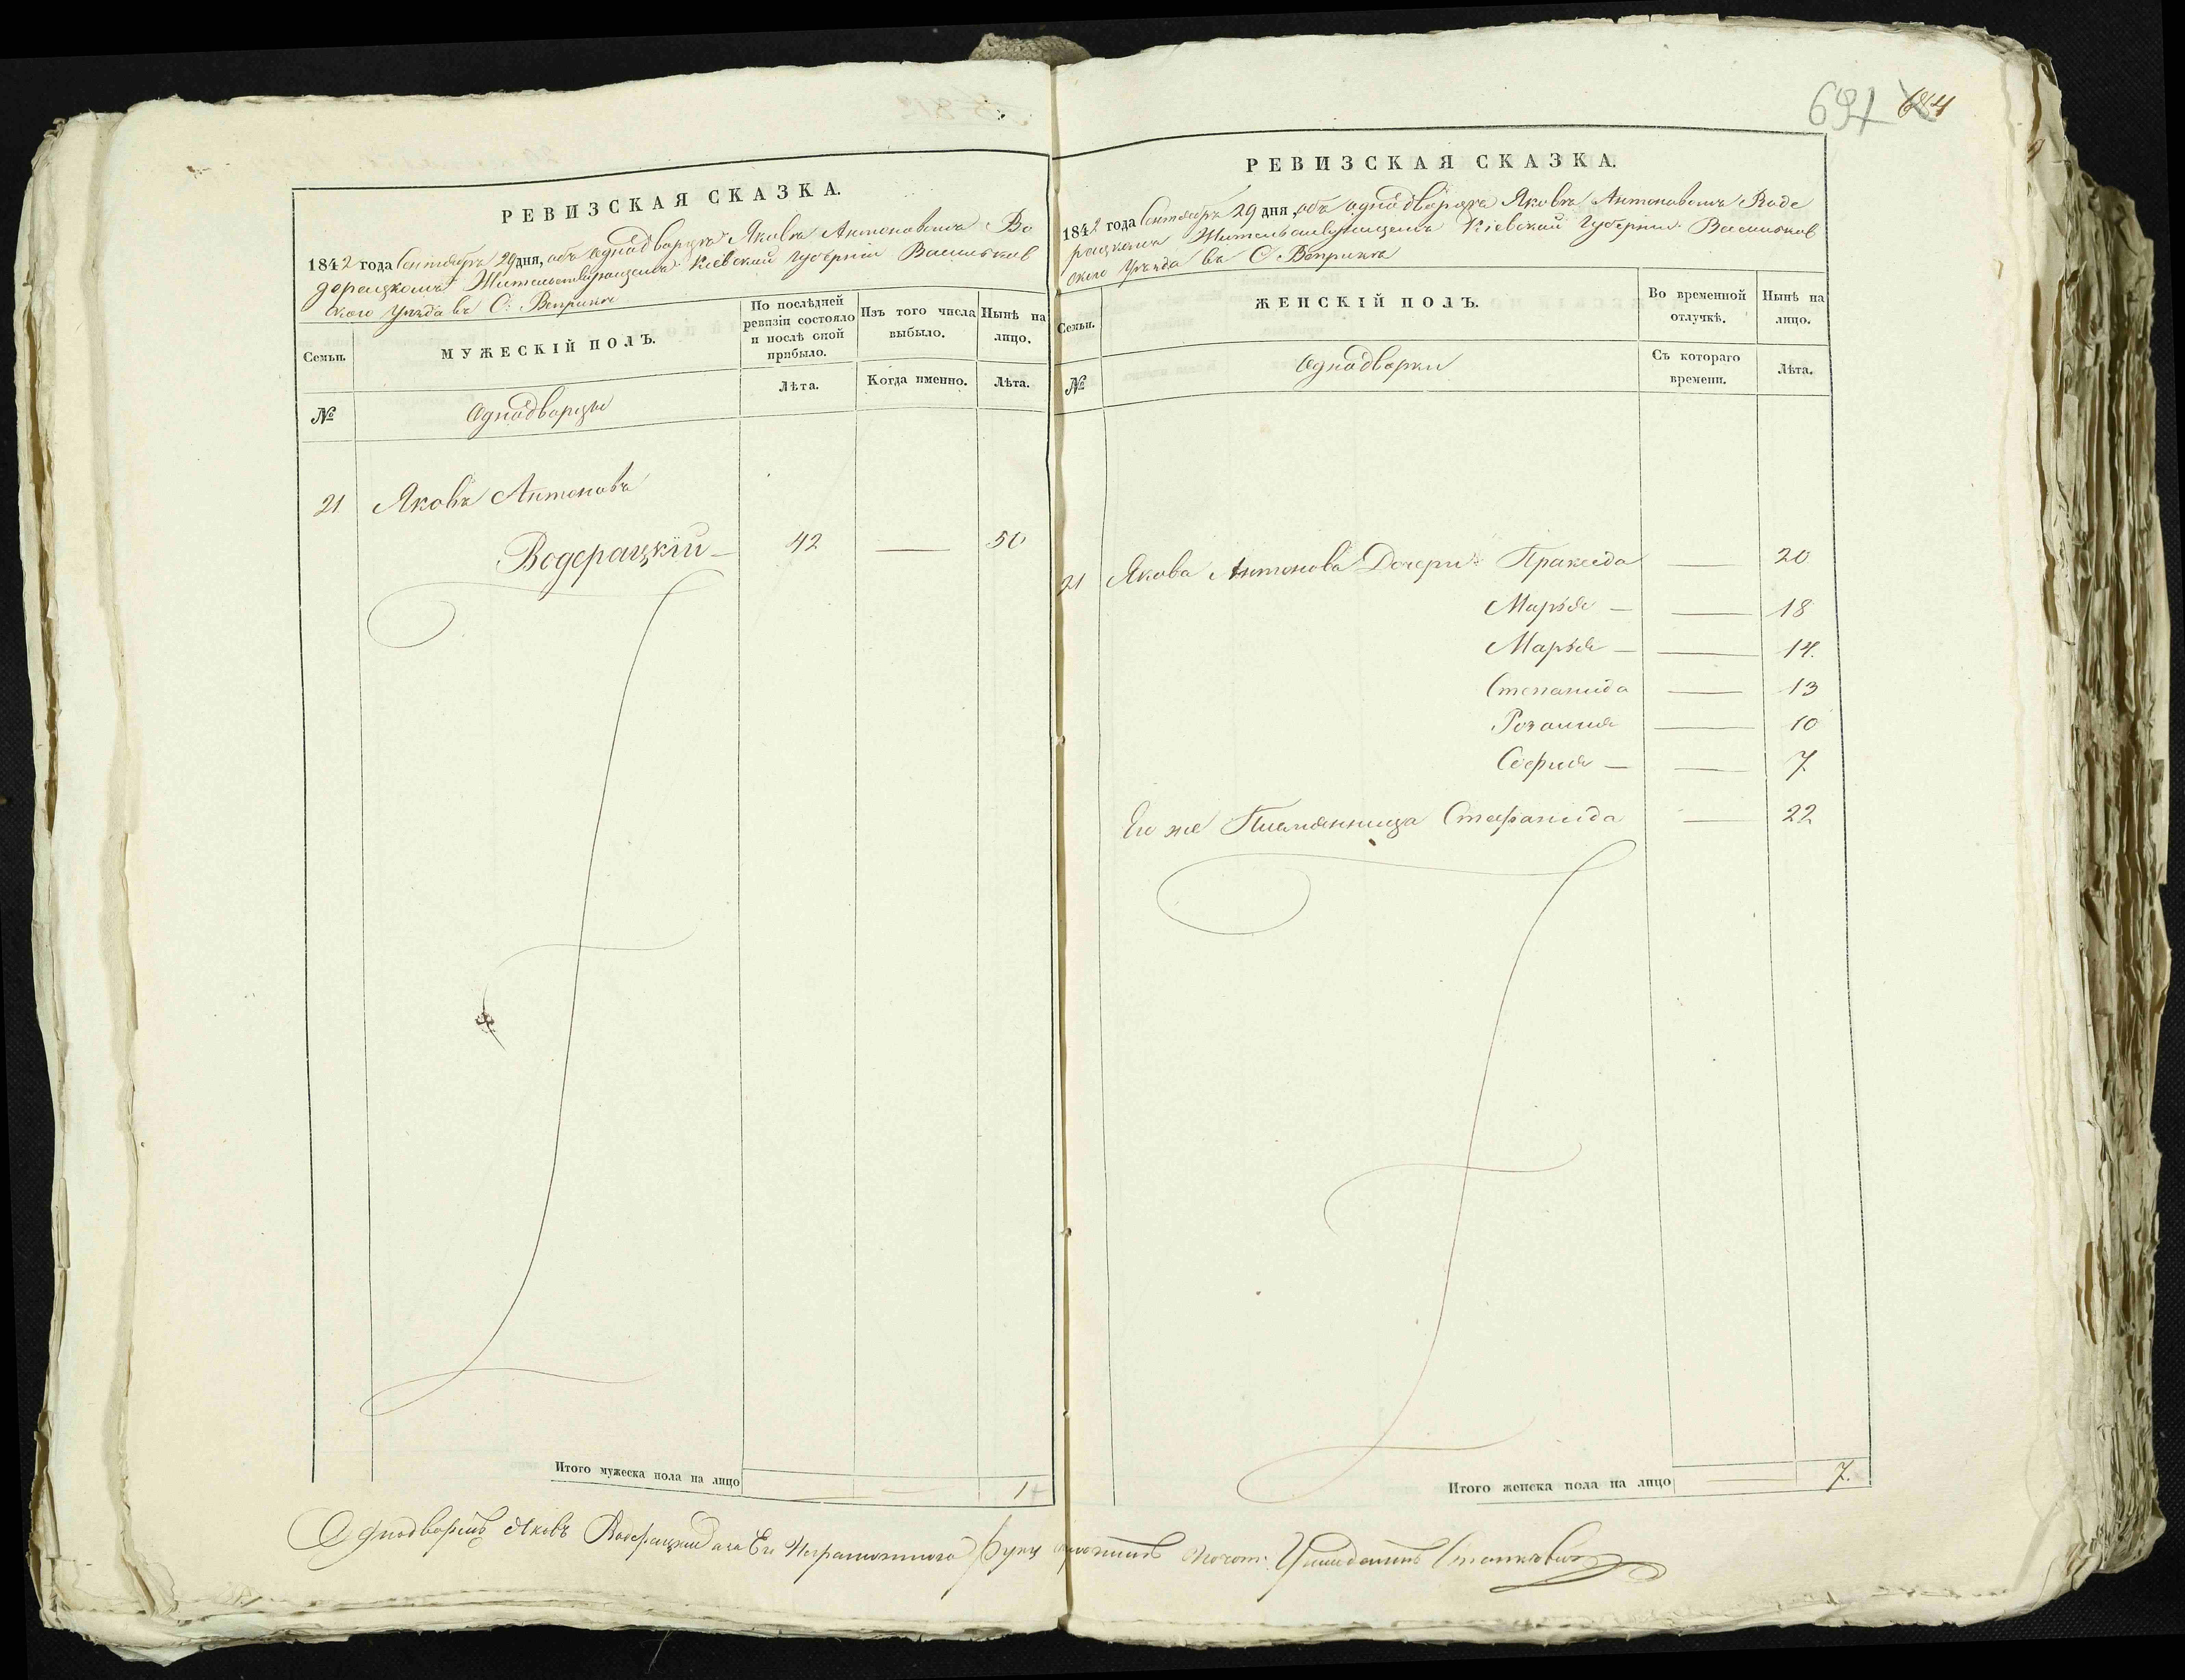 РЕВИЗСКАЯ СКАЗКА.
1842 года Сентября 29 дня, объ однодворцѣ Яковѣ Антоновомъ Во
дерацкомъ Жительствующемъ Кіевской Губерніи Васильков
скаго Уѣзда въ С. Веприкѣ
Семьи.
МУЖЕСКІЙ ПОЛЪ.
По послѣдней ревизіи состояло и послѣ оной прибыло.
Изъ того числа выбыло.
Нынѣ на лицо.
№
Однодворцы
Лѣта.
Когда именно.
Лѣта.
21 Яковъ Антоновъ
Водерацкій — 42 — 50
Итого мужеска пола на лицо — — 1
691 684
РЕВИЗСКАЯ СКАЗКА.
1842 года Сентября 29 дня, объ однодворцѣ Яковѣ Антоновомъ Воде
рацкомъ Жительствующемъ Кіевской Губерніи Васильков
скаго Уѣзда въ С. Веприкѣ
Семьи.
ЖЕНСКІЙ ПОЛЪ.
Во временной отлучкѣ.
Нынѣ на лицо.
№
Однодворки
Съ котораго времени.
Лѣта.
21 Якова Антонова Дочери: Праксида — 20
Марья — — 18
Марья — — 14.
Степанида — 13
Розалия — 10
София — — 7
Его же Племянница Стефанида — 22
Итого женска пола на лицо — 7.
Однодворецъ Яковъ Водерацкий а за Его Неграмотного руку приложилъ Станкевичъ